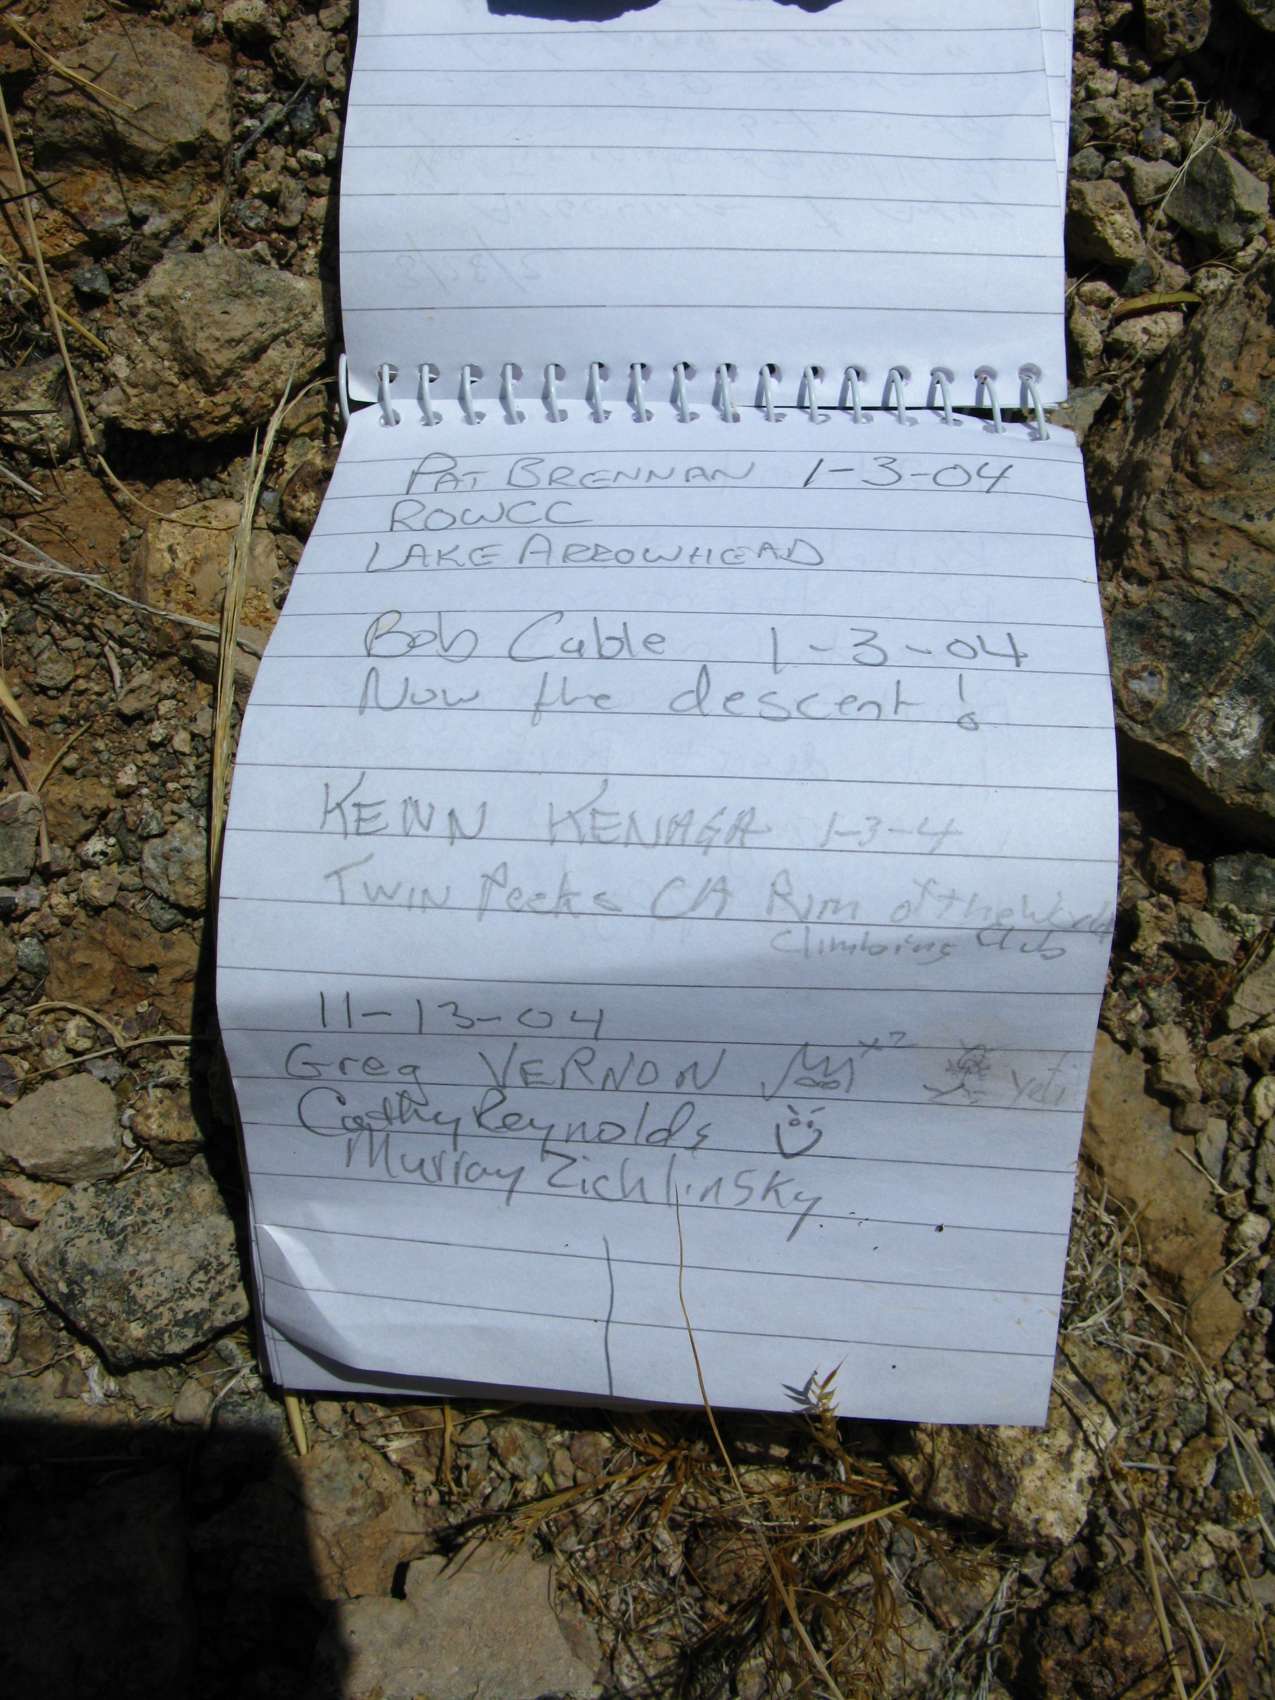 PAT BRENNAN 1-3-04
ROWCC
LAKE ARROWHEAD
Bob Cable 1-3-04
Now the descent!
KENN KENAGA 1-3-4
TWIN Peeks CA Rim of the World
Climbing Club
11-13-04
Greg VERNON x2 Yeti
Cathy Reynolds
Murray Zichlinsky